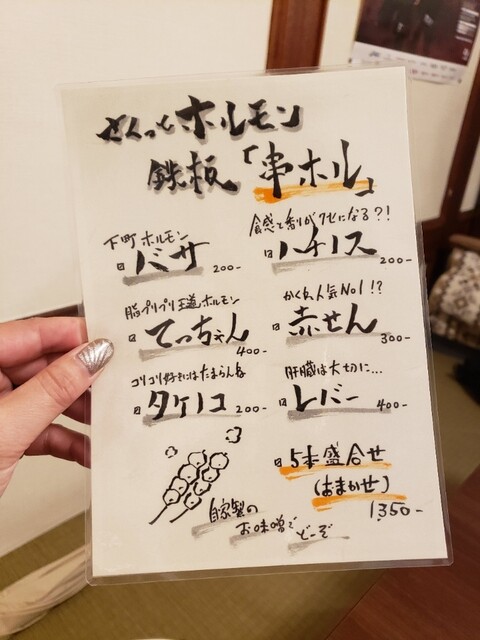 さくっとホルモン
鉄板「串ホル」
下町ホルモン
バサ 200-
食感と香りがクセになる?!
ハチノス 200-
脂プリプリ王道ホルモン
てっちゃん 400-
かくれ人気No1!?
赤せん 300-
コリコリ好きにはたまらんね
タケノコ 200-
肝臓は大切に...
レバー 400-
5本盛合せ
(おまかせ)
1350-
自家製の
お味噌で
どーぞ